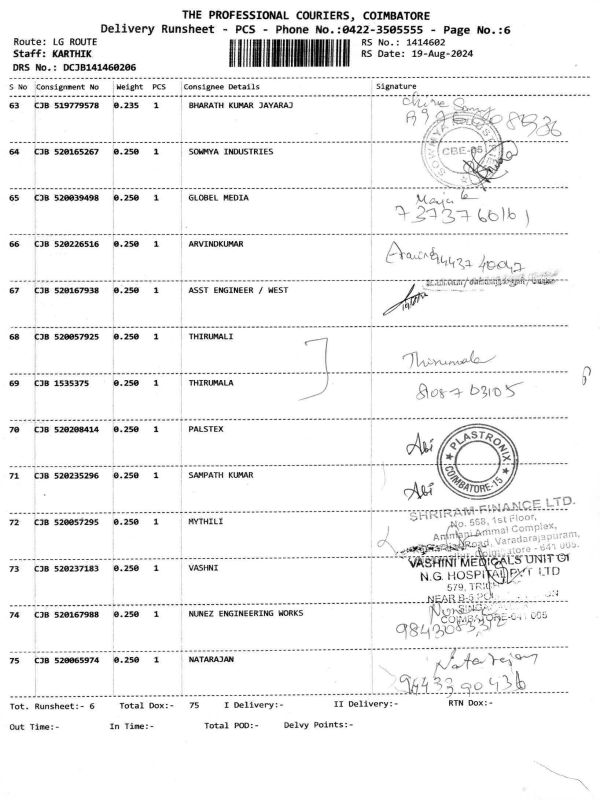 THE PROFESSIONAL COURIERS, COIMBATORE
Delivery Runsheet - PCS - Phone No.:0422-3505555 - Page No.:6
Route: LG ROUTE RS No.: 1414602
Staff: KARTHIK RS Date: 19-Aug-2024
DRS No.: DCJB141460206
S No Consignment No Weight PCS Consignee Details Signature
63 CJB 519779578 0.235 1 BHARATH KUMAR JAYARAJ
64 CJB 520165267 0.250 1 SOWMYA INDUSTRIES
SOWMYA
CBE-05
65 CJB 520039498 0.250 1 GLOBEL MEDIA
7373760161
66 CJB 520226516 0.250 1 ARVINDKUMAR
67 CJB 520167938 0.250 1 ASST ENGINEER / WEST
68 CJB 520057925 0.250 1 THIRUMALI
Thirumala
69 CJB 1535375 0.250 1 THIRUMALA
81087 03105
70 CJB 520208414 0.250 1 PALSTEX
Abi
PLASTRONIX
COIMBATORE-15
71 CJB 520235296 0.250 1 SAMPATH KUMAR
Abi
72 CJB 520057295 0.250 1 MYTHILI
SHRIRAM FINANCE LTD.
No. 568, 1st Floor,
Ammani Ammal Complex,
Road, Varadarajapuram,
Coimbatore - 641 005.
73 CJB 520237183 0.250 1 VASHNI
VASHINI MEDICALS UNIT OF
N.G. HOSPITAL PVT LTD
579,
NEAR
COIMBATORE-641 005
74 CJB 520167988 0.250 1 NUNEZ ENGINEERING WORKS
75 CJB 520065974 0.250 1 NATARAJAN
Natarajan
9443390436
Tot. Runsheet:- 6 Total Dox:- 75 I Delivery:- II Delivery:- RTN Dox:-
Out Time:- In Time:- Total POD:- Delvy Points:-